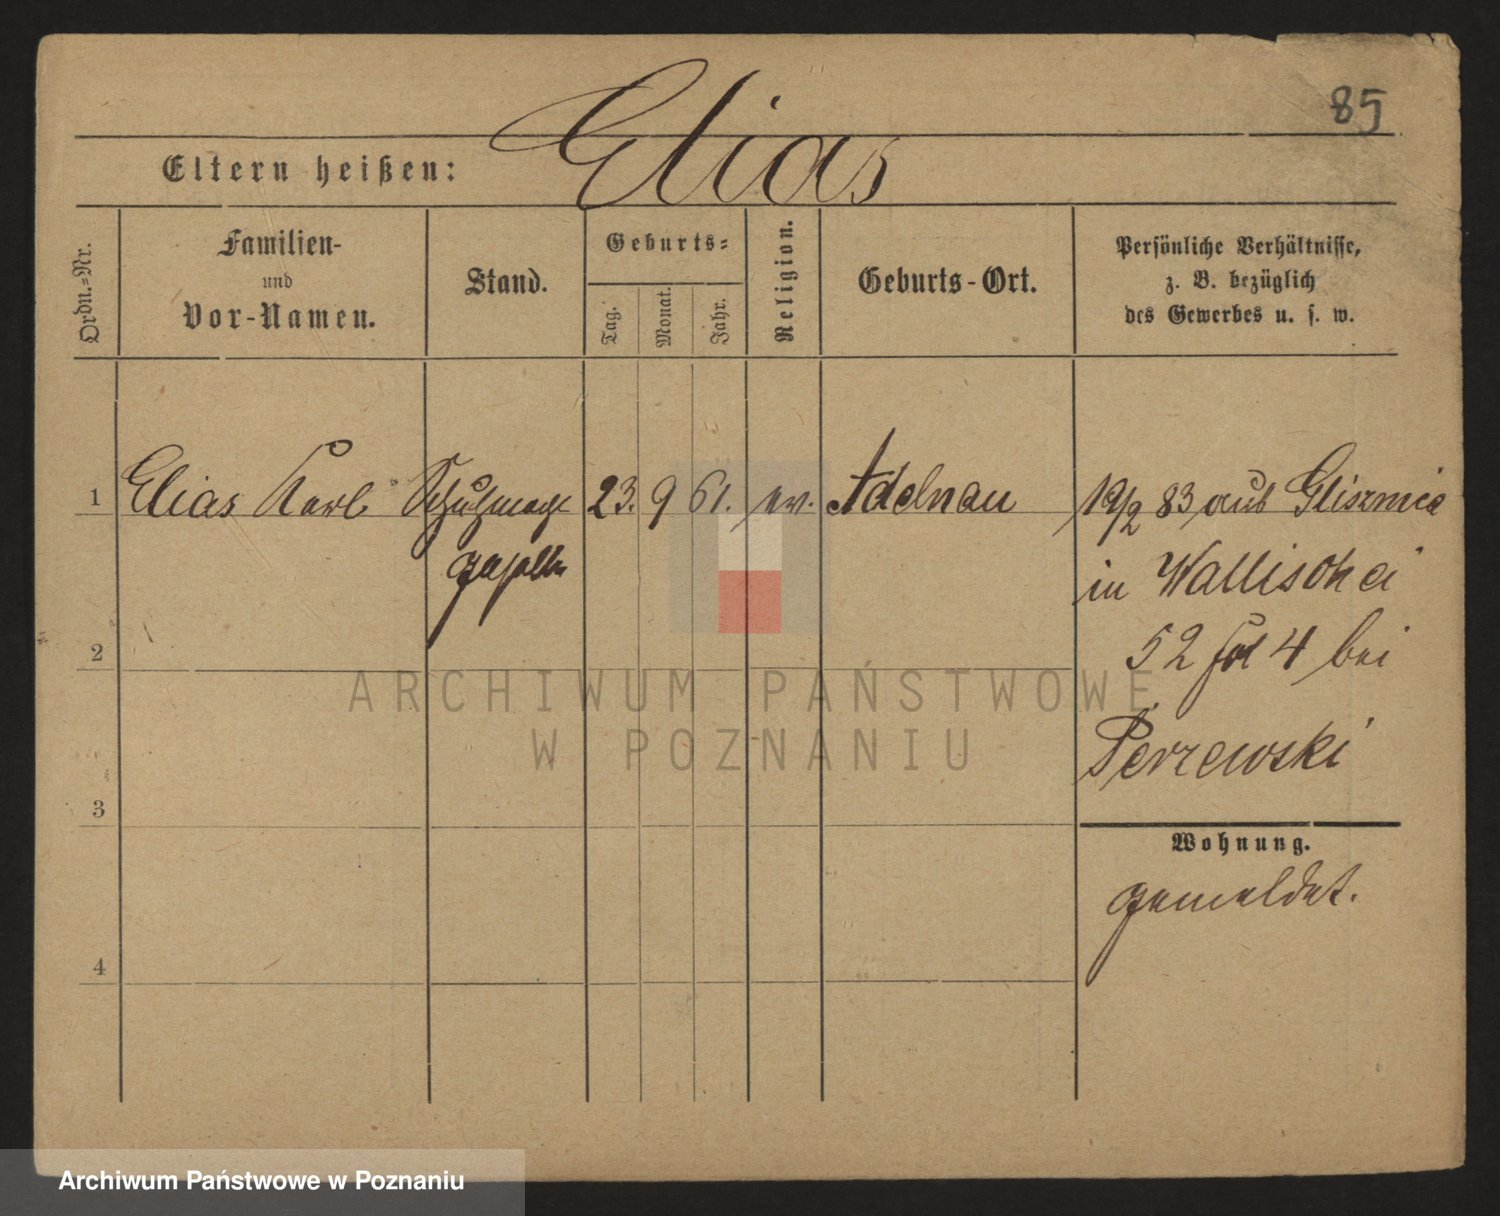 85
Elias
Eltern heißen:
Ordn.=Nr.
Familien-
und
Vor-Namen.
Stand.
Geburts=
Tag.
Monat.
Jahr.
Religion.
Geburts-Ort.
Persönliche Verhältnisse,
z. B. bezüglich
des Gewerbes u. s. w.
1 Elias Karl 23. 9 61. ev. Adelnau 19/2 83 aus
geselle
in Wallischei
2
52 4 bei
Perzewski
3
Wohnung.
gemeldet.
4
ARCHIWUM PAŃSTWOWE
W POZNANIU
Archiwum Państwowe w Poznaniu